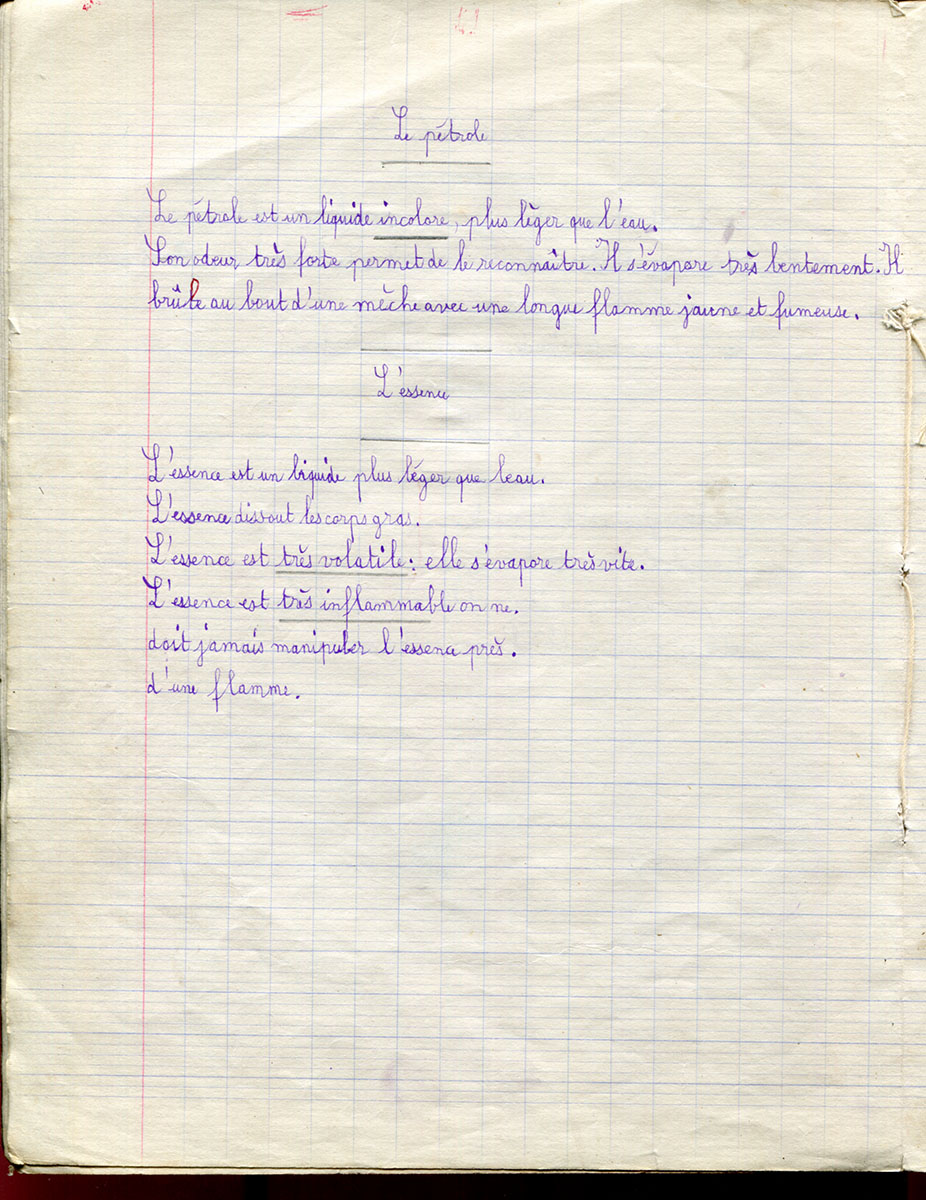 Le pétrole
Le pétrole est un liquide incolore, plus lèger que l'eau.
Son odeur très forte permet de le reconnaître. Il s'évapore très lentement. Il
brûle au bout d'une mèche avec une longue flamme jaune et fumeuse.
L'essence
L'essence est un liquide plus léger que leau.
L'essence dissout les corps gras.
L'essence est très volatile: elle s'évapore très vite.
L'essence est très inflammable on ne.
doit jamais manipuler l'essence près.
d'une flamme.